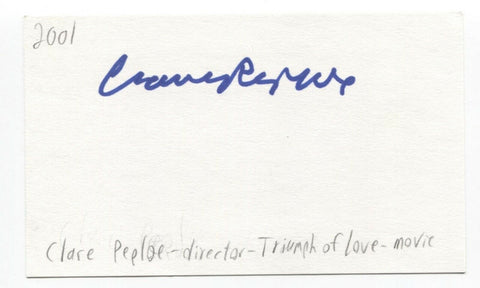 2001
Clare Peploe
Clare Peploe-director-Triumph of Love-movie